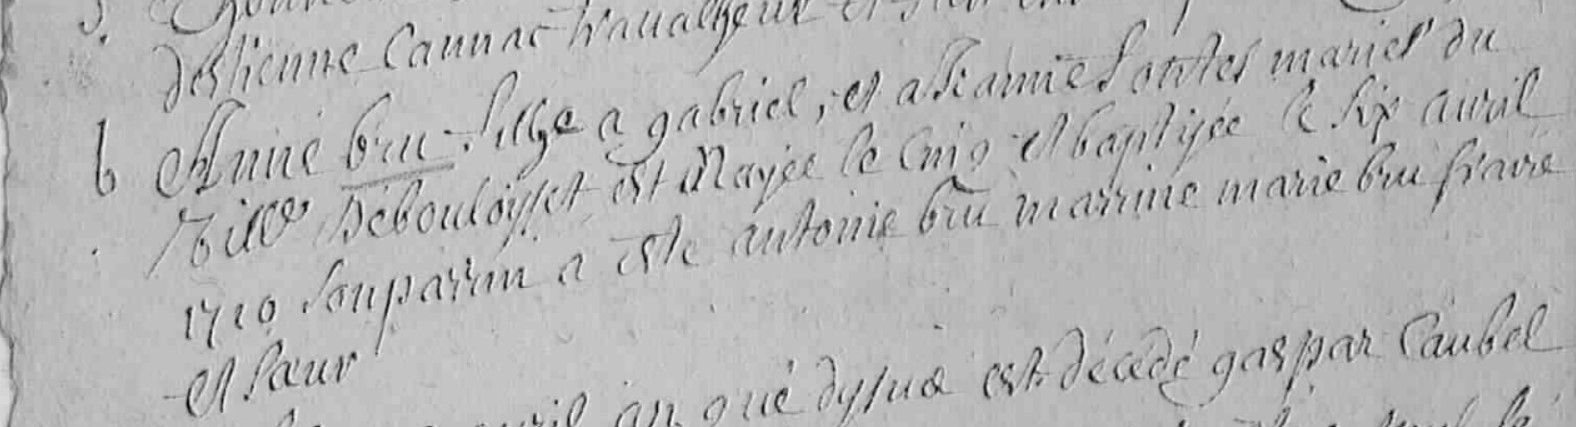 destienne Caunac travalheur et
b Anne bru filhe a gabriel, et a Jeanne fontes maries du
ville debouloysset est Nayee le cinq et baptisée le six avril
1710 son parrin a esté antoine bru marrine marie bru fraire
et sœur
avril an que dessus est décédé gaspar Caubel